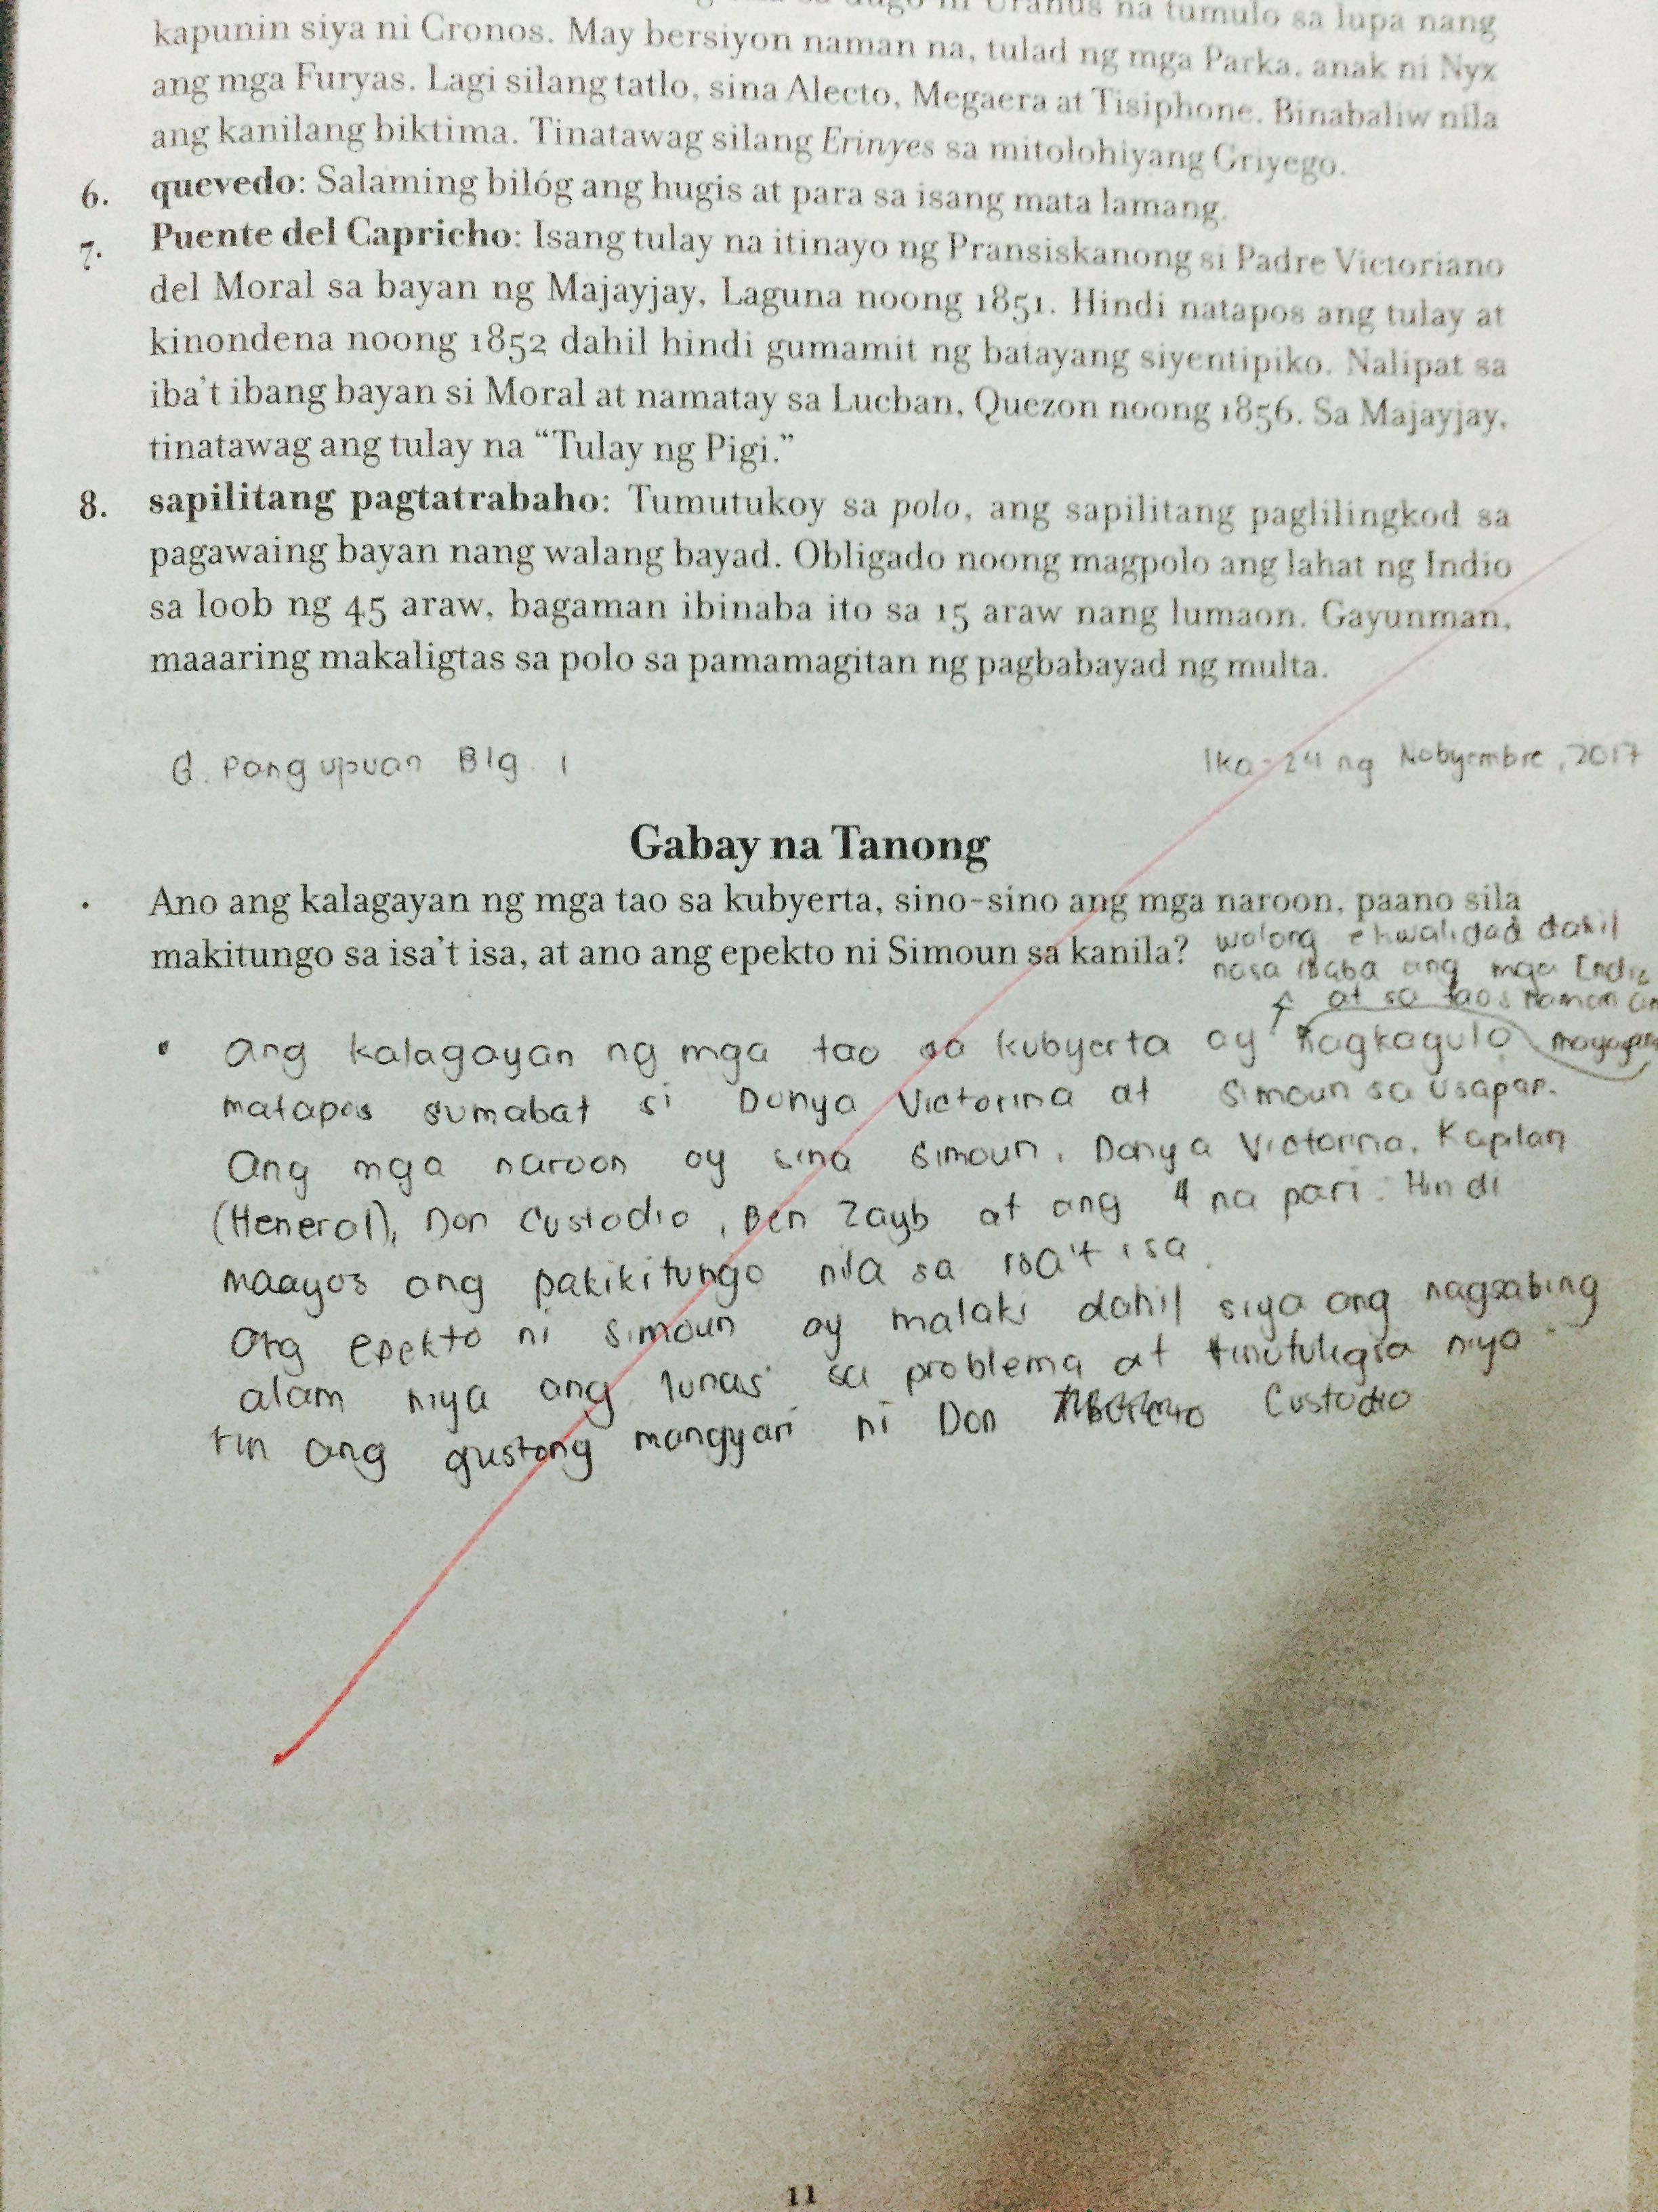 dugo ni Uranus na tumulo sa lupa nang
kapunin siya ni Cronos. May bersiyon naman na, tulad ng mga Parka, anak ni Nyx
ang mga Furyas. Lagi silang tatlo, sina Alecto, Megaera at Tisiphone. Binabaliw nila
ang kanilang biktima. Tinatawag silang Erinyes sa mitolohiyang Griyego.
6. quevedo: Salaming bilóg ang hugis at para sa isang mata lamang.
7. Puente del Capricho: Isang tulay na itinayo ng Pransiskanong si Padre Victoriano
del Moral sa bayan ng Majayjay, Laguna noong 1851. Hindi natapos ang tulay at
kinondena noong 1852 dahil hindi gumamit ng batayang siyentipiko. Nalipat sa
iba't ibang bayan si Moral at namatay sa Lucban, Quezon noong 1856. Sa Majayjay,
tinatawag ang tulay na “Tulay ng Pigi.”
8. sapilitang pagtatrabaho: Tumutukoy sa polo, ang sapilitang paglilingkod sa
pagawaing bayan nang walang bayad. Obligado noong magpolo ang lahat ng Indio
sa loob ng 45 araw, bagaman ibinaba ito sa 15 araw nang lumaon. Gayunman,
maaaring makaligtas sa polo sa pamamagitan ng pagbabayad ng multa.
G. Pangupuan Blg. 1 Ika-24 ng Nobyembre, 2017
Gabay na Tanong
· Ano ang kalagayan ng mga tao sa kubyerta, sino-sino ang mga naroon, paano sila
makitungo sa isa't isa, at ano ang epekto ni Simoun sa kanila?
walang ekwalidad dahil
nasa ibaba ang mga Indio
at sa taas naman
mayayaman
• Ang kalagayan ng mga tao sa kubyerta ay nagkagulo
matapos sumabat si Donya Victorina at Simoun sa usapan.
Ang mga naroon ay sina Simoun, Donya Victorina, Kapitan
(Heneral), Don Custodio, Ben Zayb at ang 4 na pari. Hindi
maayos ang pakikitungo nila sa isa't isa.
Ang epekto ni Simoun ay malaki dahil siya ang nagsabing
alam niya ang lunas sa problema at tinutuligsa niya
rin ang gustong mangyari ni Don Custodio
11